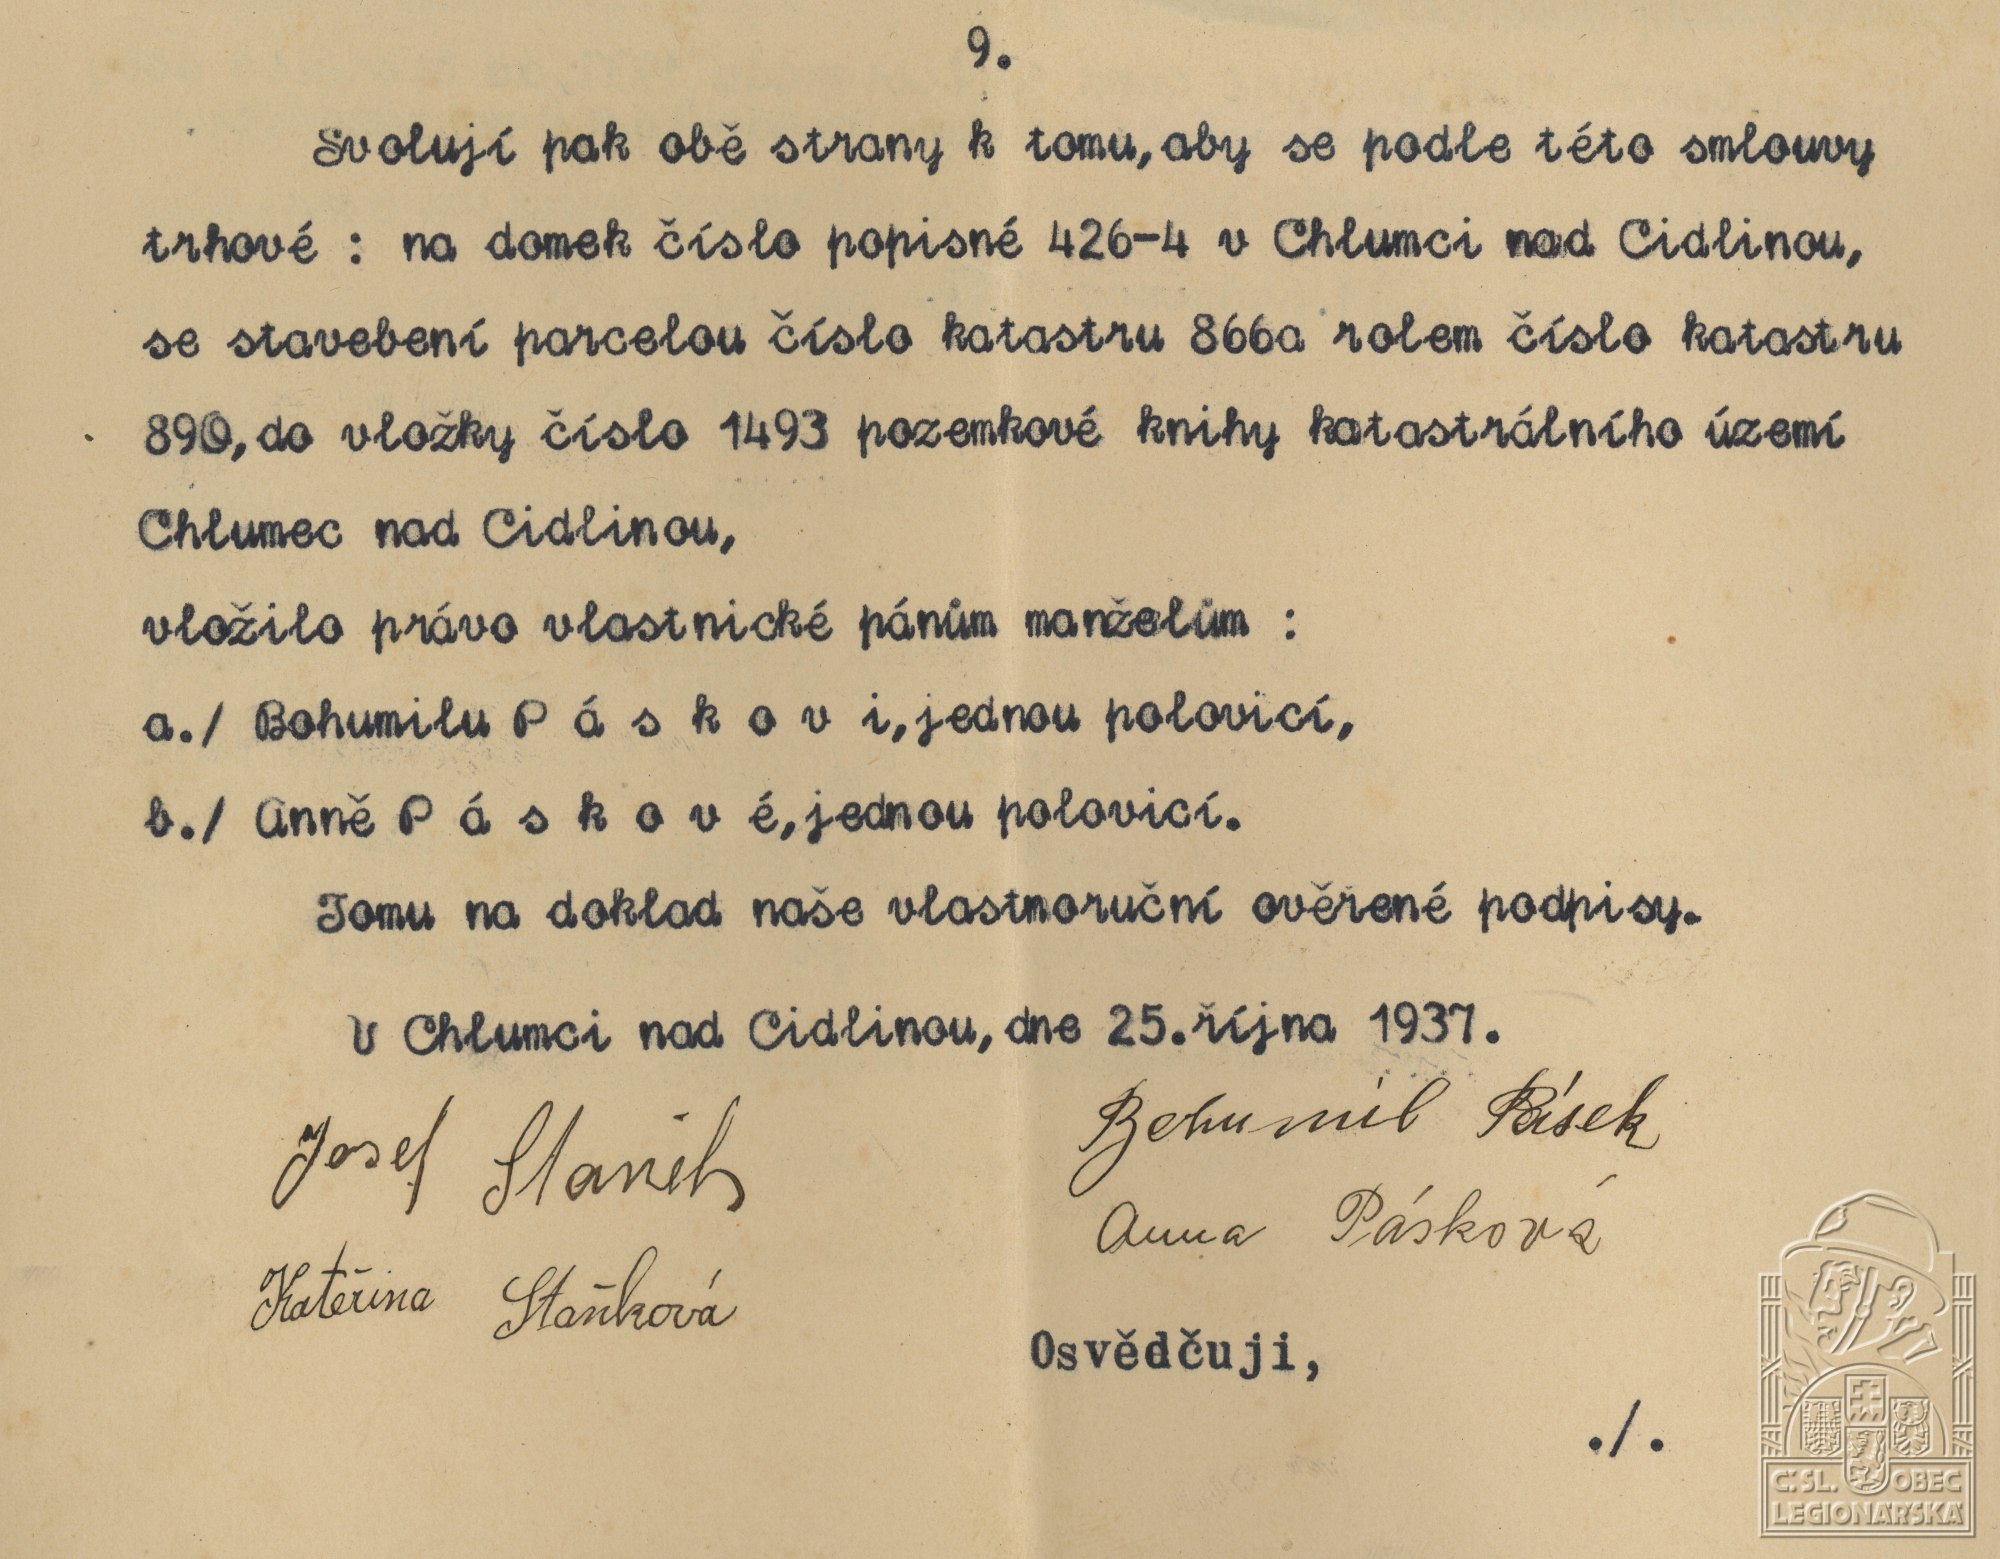 9.
Svolují pak obě strany k tomu, aby se podle této smlouvy
trhové : na domek číslo popisné 426-4 v Chlumci nad Cidlinou,
se stavebení parcelou číslo katastru 866a rolem číslo katastru
890, do vložky číslo 1493 pozemkové knihy katastrálního území
Chlumec nad Cidlinou,
vložilo právo vlastnické pánům manželům :
a./ Bohumilu P á s k o v i, jednou polovicí,
b./ Anně P á s k o v é, jednou polovicí.
Tomu na doklad naše vlastnoruční ověřené podpisy.
V Chlumci nad Cidlinou, dne 25. října 1937.
Josef Staněk
Bohumil Pásek
Anna Pásková
Kateřina Staňková
Osvědčuji,
./.
Č. SL. OBEC
LEGIONÁŘSKÁ